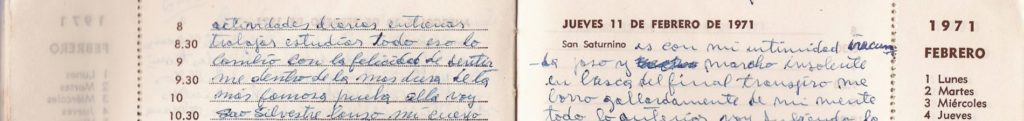 1971
FEBRERO
1 Lunes
2 Martes
3 Miércoles
4 Jueves
8 actividades diarias entrenar
8.30 trabajar estudiar todo eso lo
9 cambio con la felicidad de sentir
9.30 me dentro de la mas dura de la
10 más famosa prueba alla voy
10.30 Sao Silvestre lanzo mi cuerpo
JUEVES 11 DE FEBRERO DE 1971
San Saturnino es con mi intimidad
da paso y marcho insolente
en busca del final transpiro me
borro gallardamente de mi mente
todo lo anterior voy
1971
FEBRERO
1 Lunes
2 Martes
3 Miércoles
4 Jueves